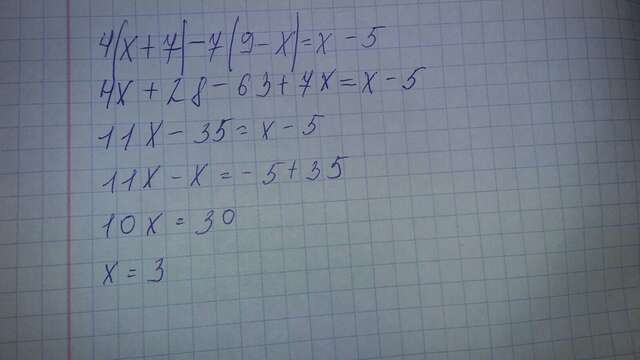 4(x+7)-7(9-x)=x-5
4x+28-63+7x=x-5
11x-35=x-5
11x-x=-5+35
10x=30
x=3